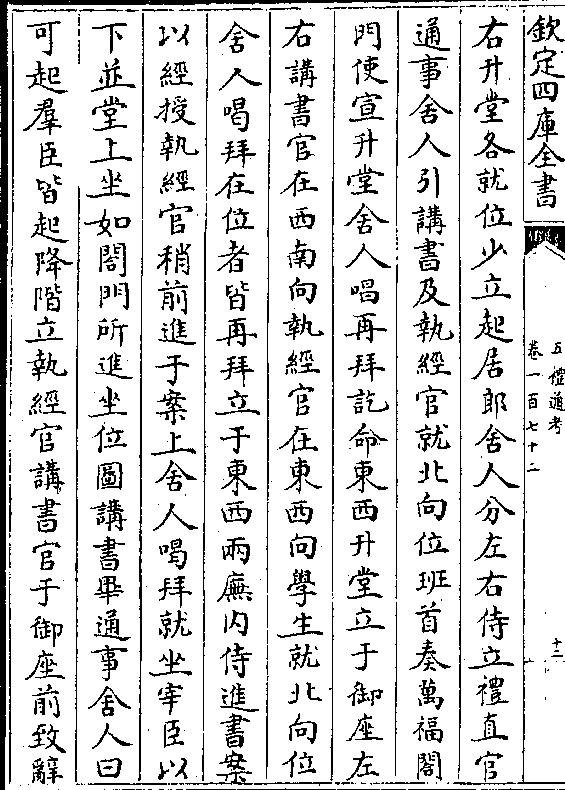 欽定四庫全書
五禮通考
卷一百七十二
十二
右升堂各就位少立起居郎舍人分左右侍立禮直官
通事舍人引講書及執經官就北向位班首奏萬福閤
門使宣升堂舍人唱再拜訖命東西升堂立于御座左
右講書官在西南向執經官在東西向學生就北向位
舍人喝拜在位者皆再拜立于東西兩廡内侍進書案
以經授執經官稍前進于案上舍人喝拜就坐宰臣以
下並堂上坐如閤門所進坐位圖講書畢通事舍人曰
可起羣臣皆起降階立執經官講書官于御座前致辭